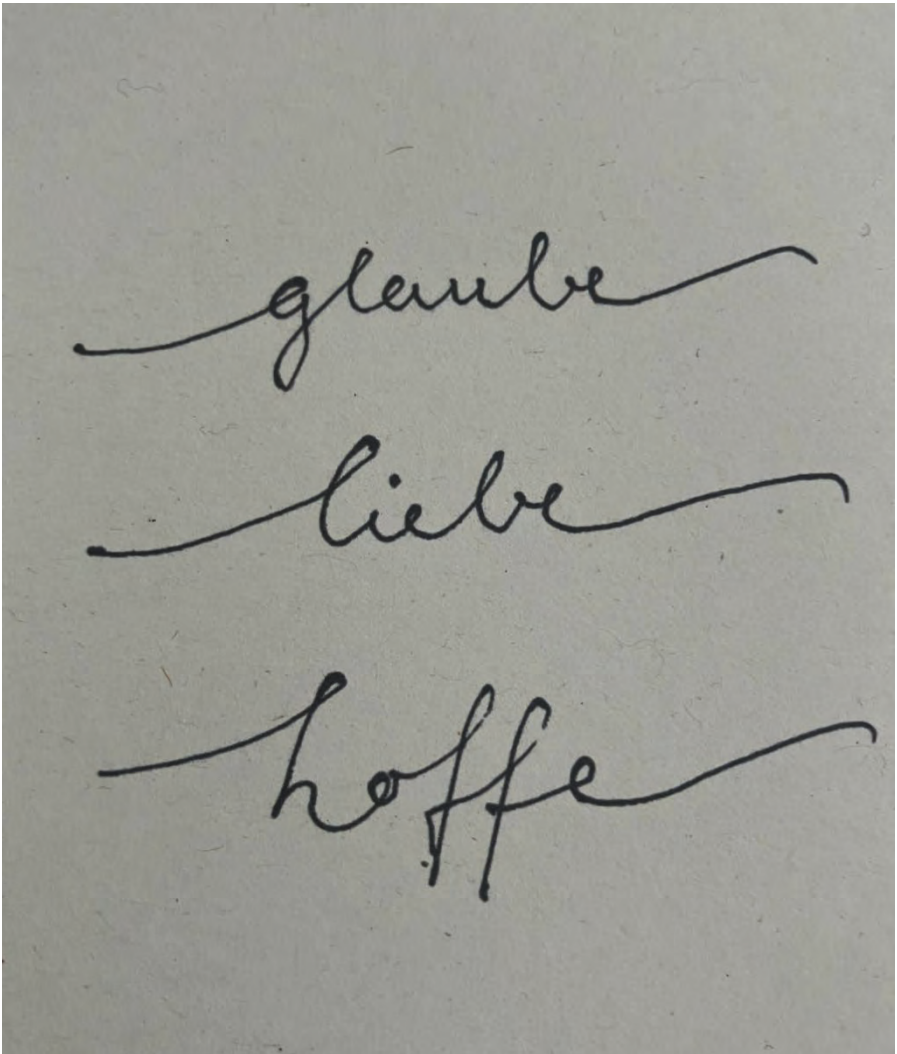 glaube
liebe
hoffe